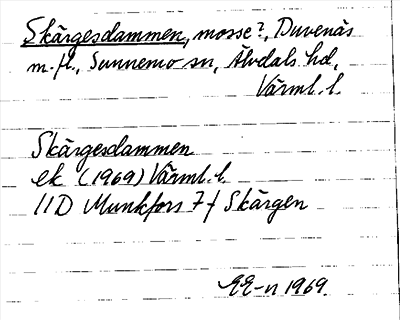 Skärgesdammen, mosse?, Duvenäs
m.fl., Sunnemo sn, Älvdals hd,
Värml. l.
Skärgesdammen
ek (1969) Värml. l.
11D Munkfors 7f Skärgen
EE-n 1969.